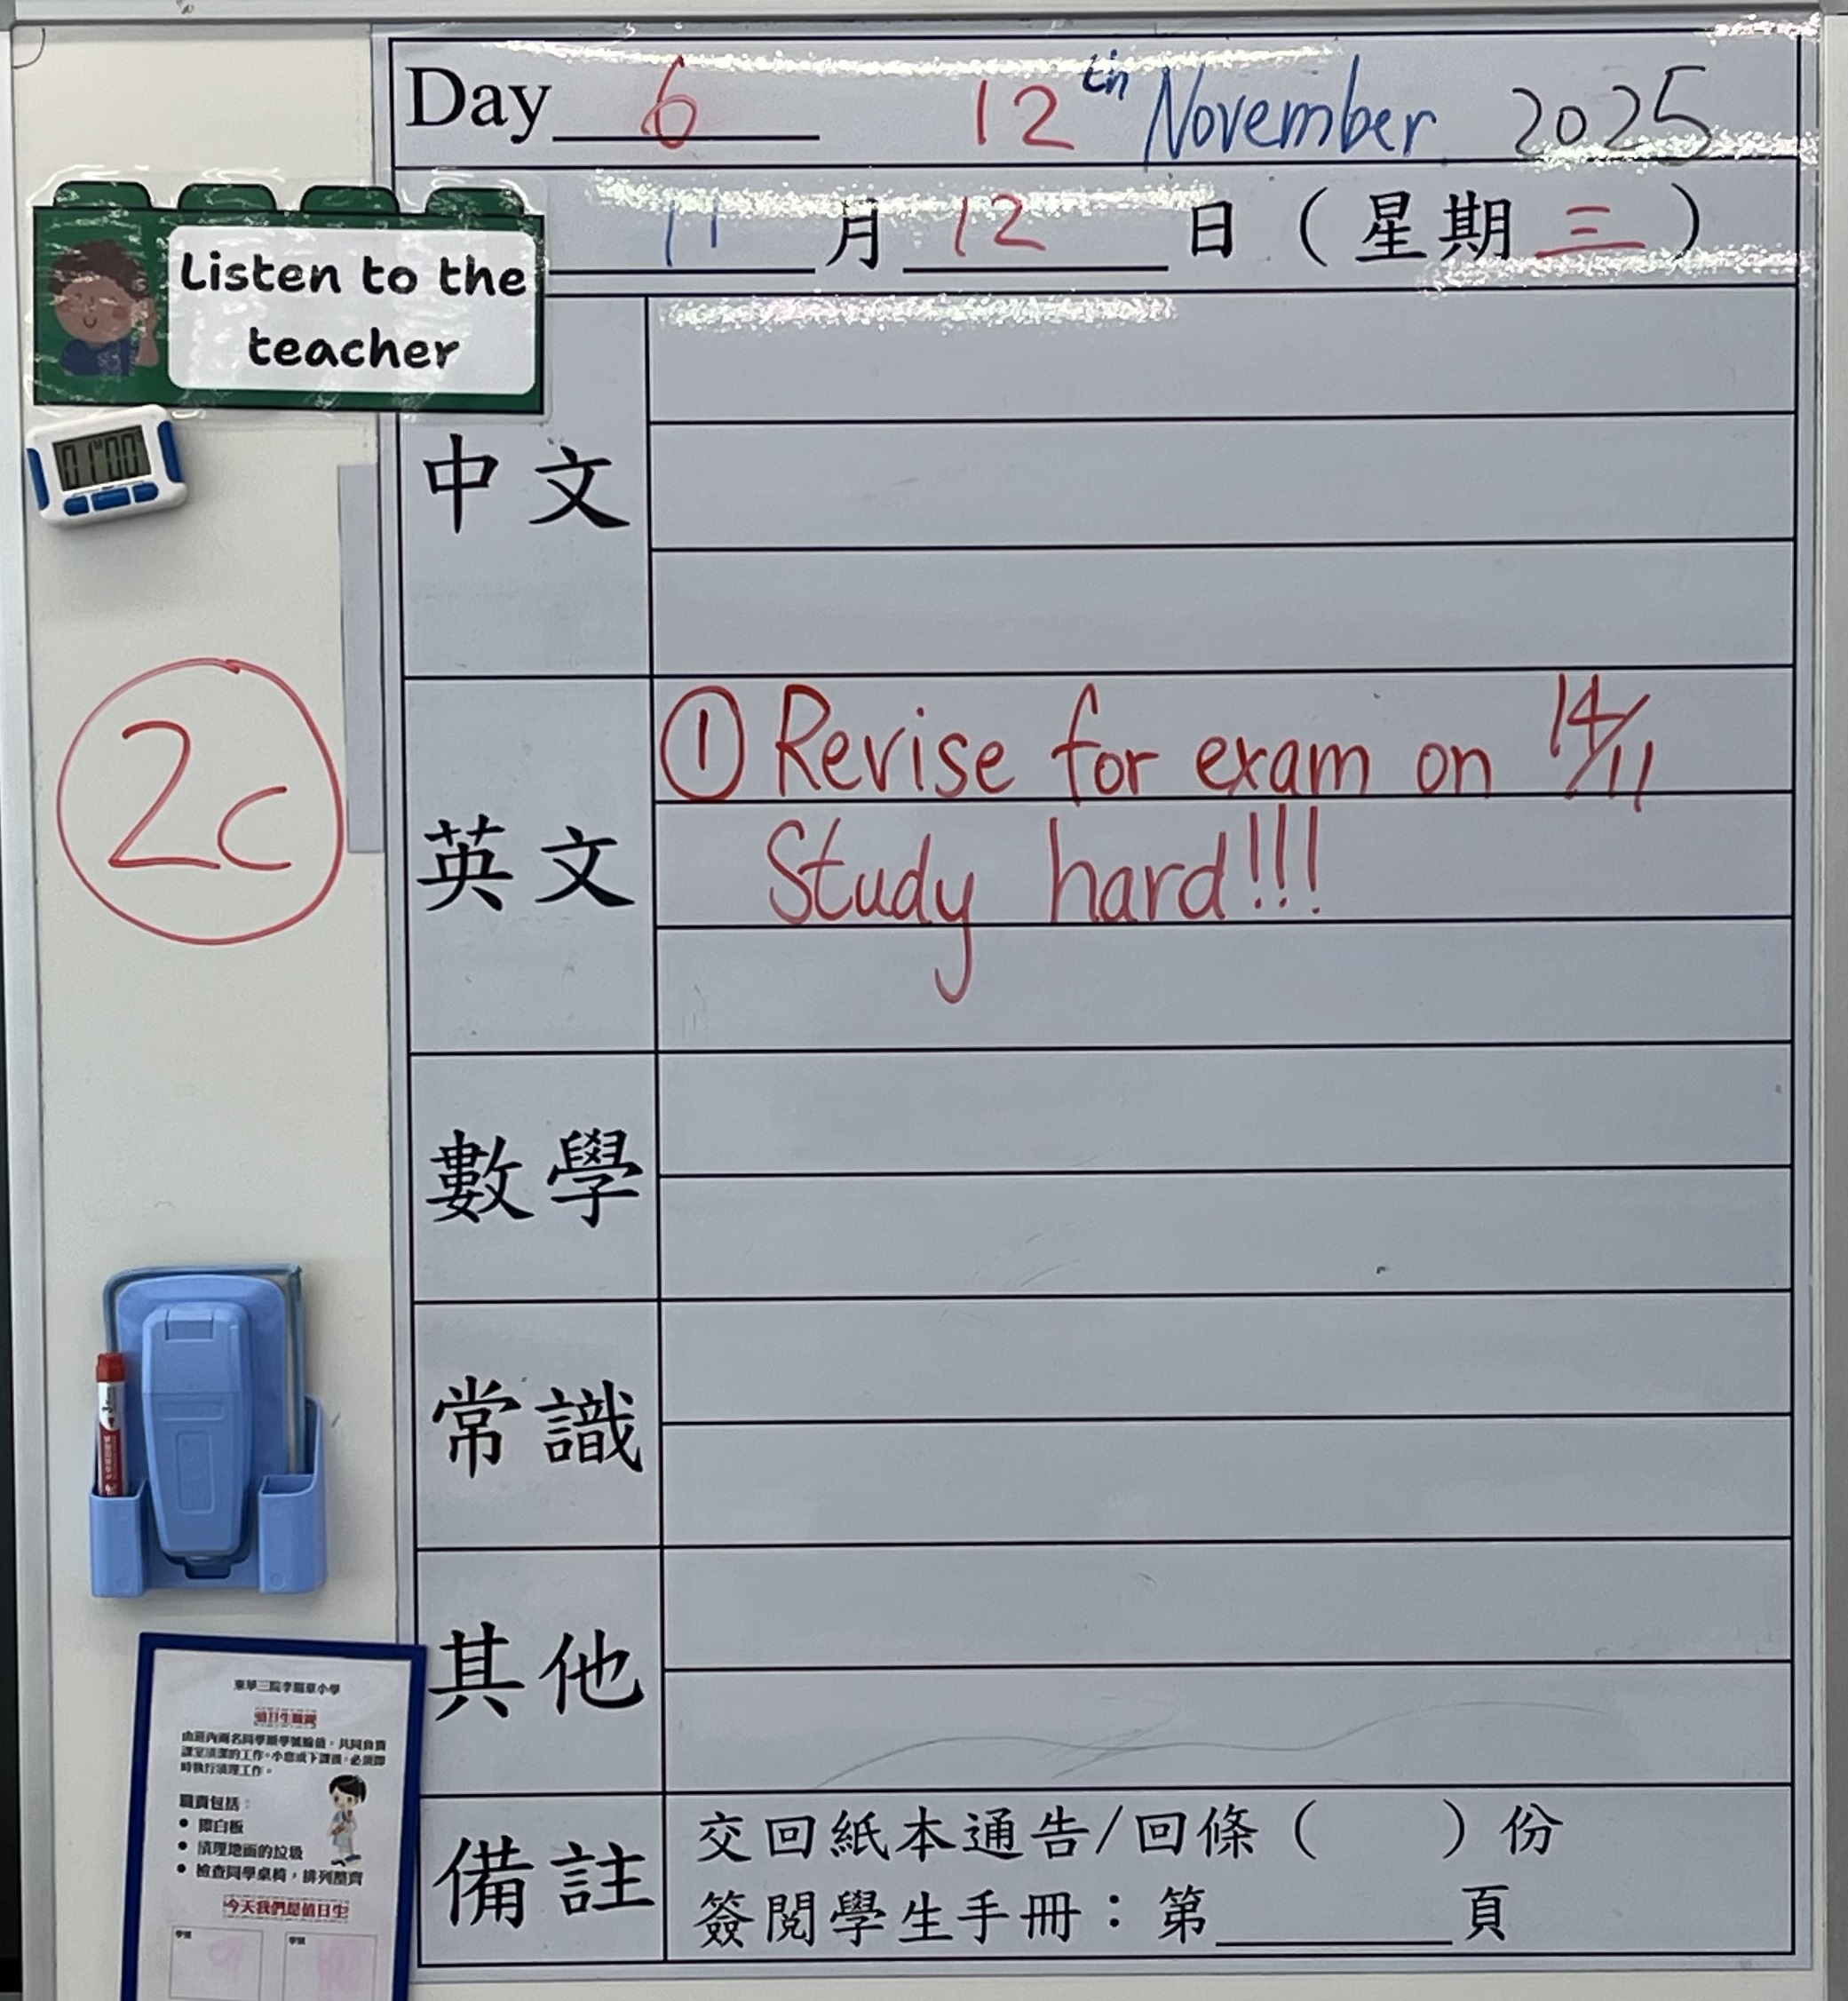 Day 6 12th November 2025
11 月 12 日 (星期 三)
Listen to the
teacher
01 00
中文
2c
英文
① Revise for exam on 14/11
Study hard!!!
數學
常識
其他
備註
交回紙本通告/回條( )份
簽閱學生手冊:第 頁
由班內兩名同學順學號輪值,共同負責
課室清潔的工作。小息或下課後,必須即
時執行清理工作。
職責包括:
● 擦白板
● 清理地面的垃圾
● 檢查同學桌椅,排列整齊
今天我們是值日生
學號
學號